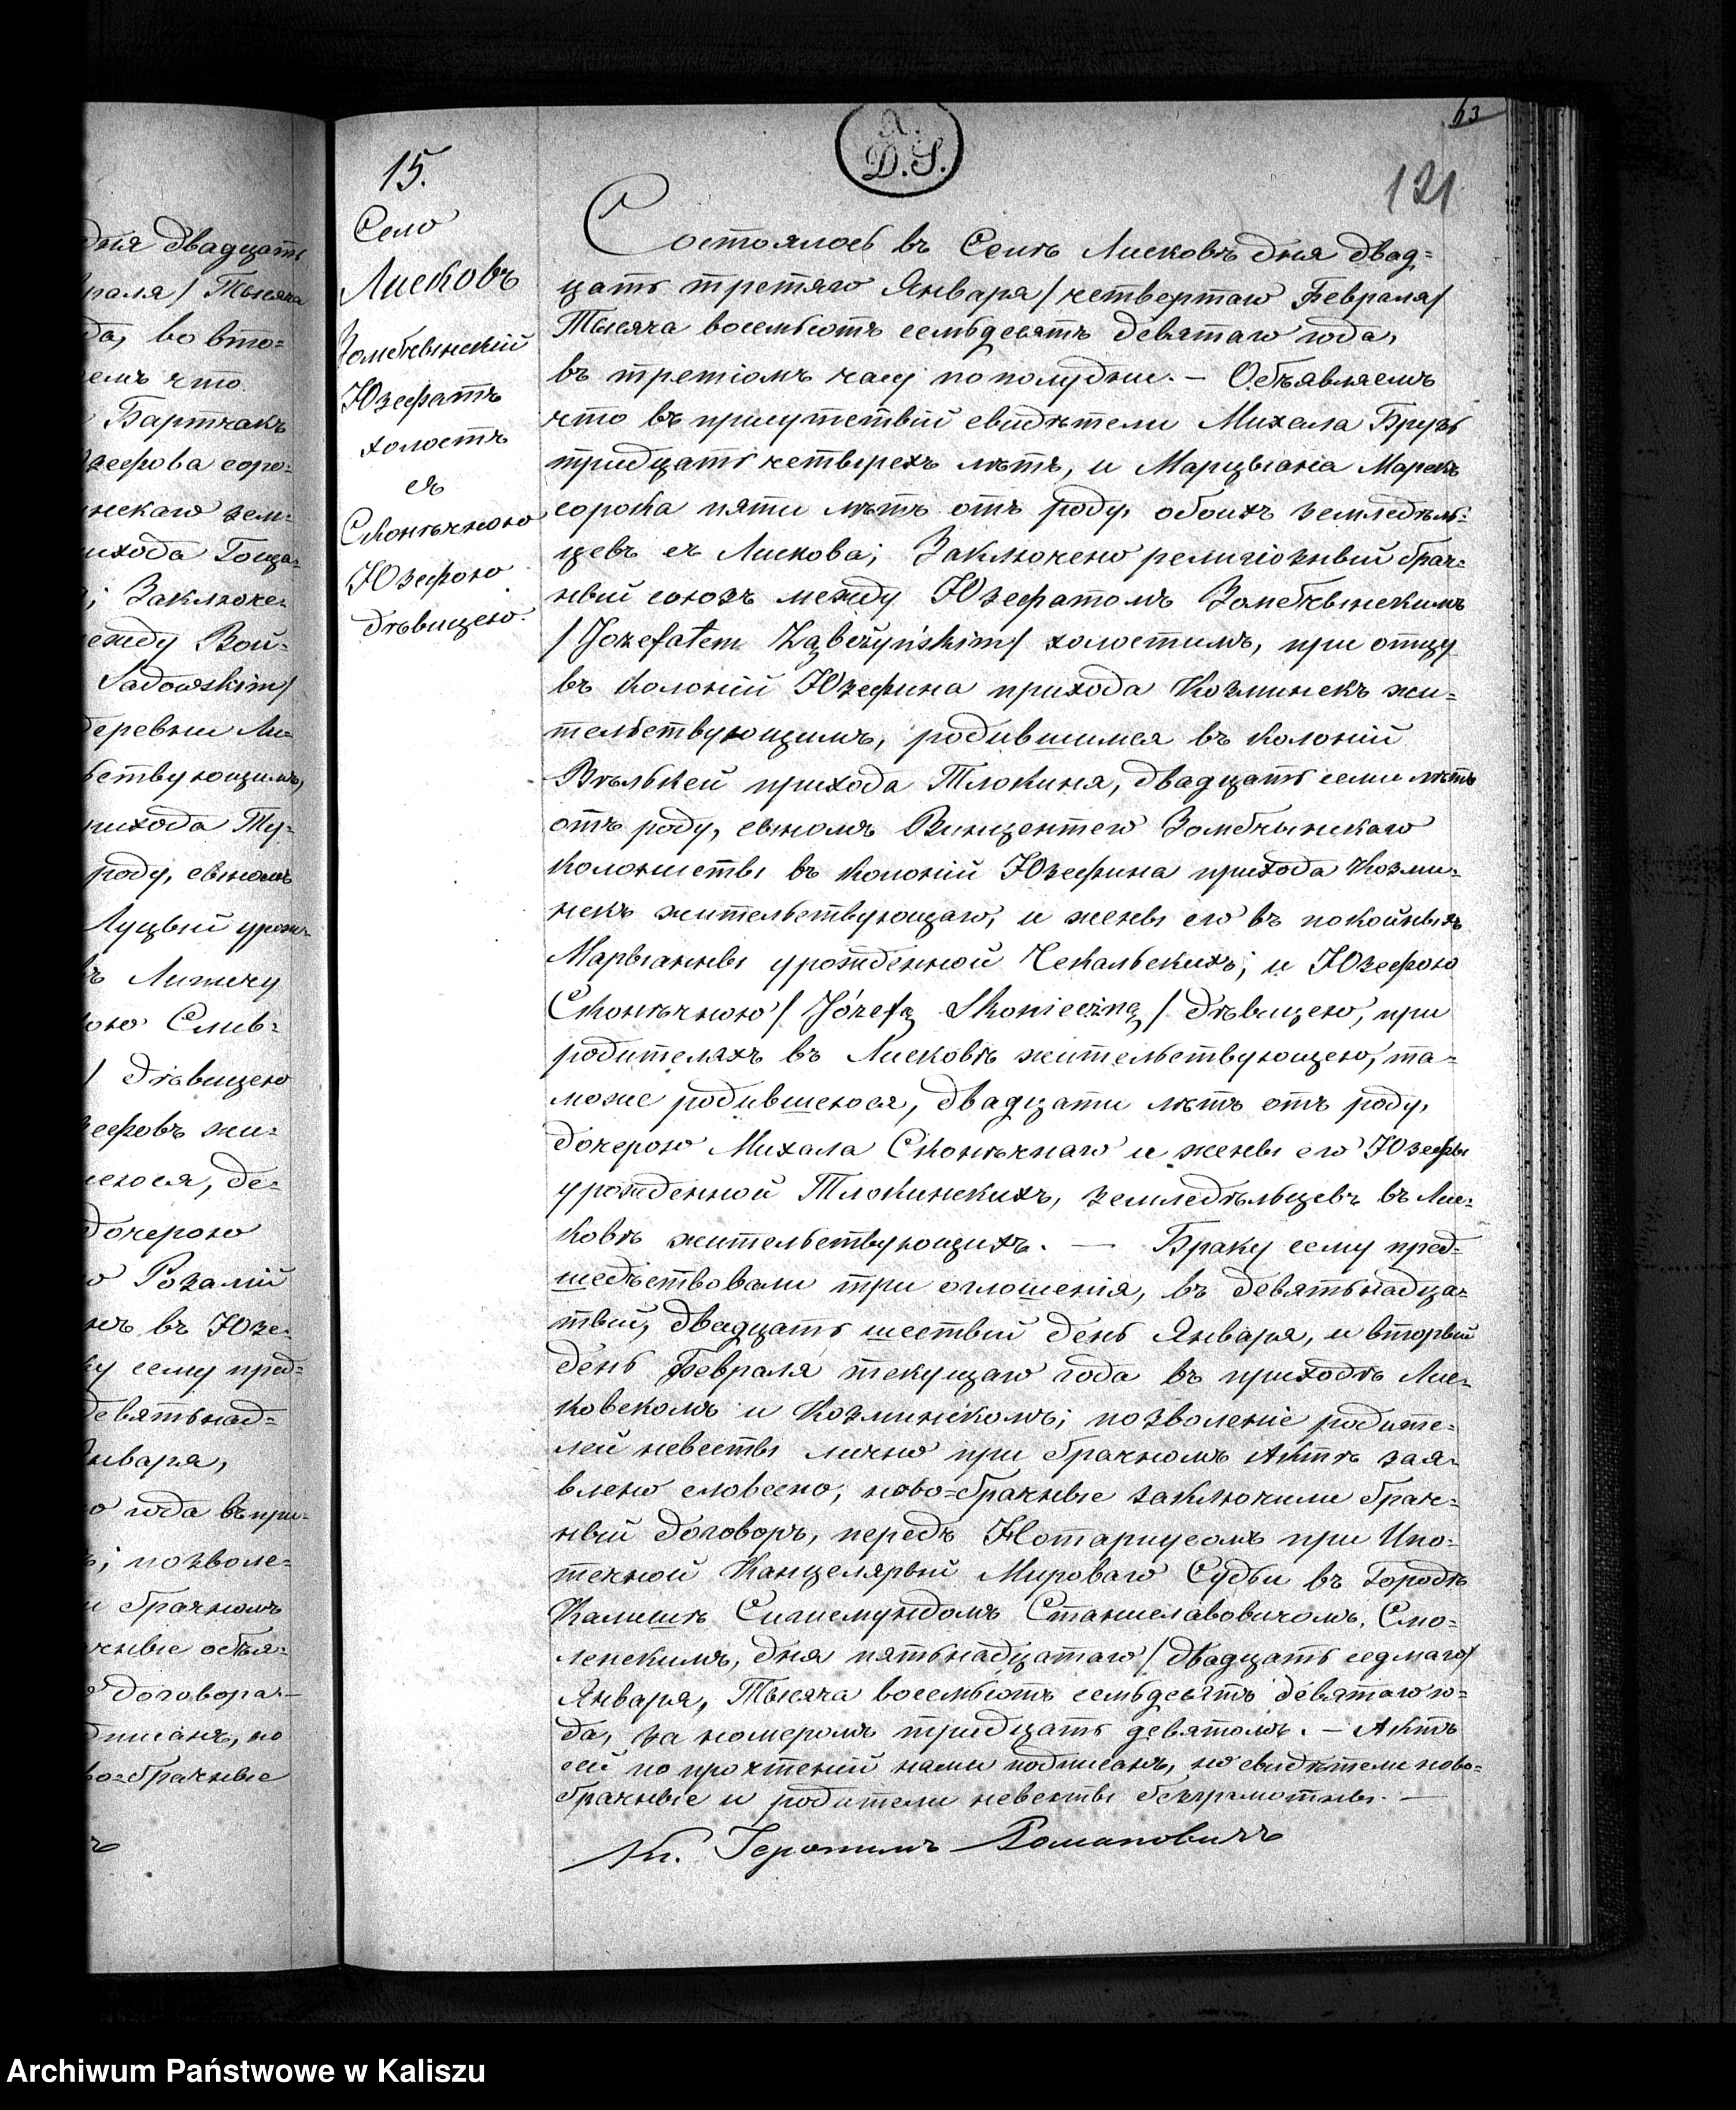 дня двадцать
враля / Тысяча
да, во вто=
емъ что
Бартчакъ
Юзефова соро=
нскаго зем=
ихода Гоща=
; Заключе=
ежду Вой=
Sadowskim/
деревни Ли=
ьствующимъ,
прихода Ту=
роду, сыномъ
Луцыи урож=
Липичу
ою Слив=
/ дѣвицею
зефовъ жи=
шеюся, де=
дочерою
Розалiи
въ Юзе=
ку сему пред=
девятьнад=
Января,
о года въ при=
; позволе=
и брачномъ
чные объя=
договора.—
дписанъ, но
во=брачные
63
121
X.
D.S.
15.
Село
Лисковъ
Зомбчынскiй
Юзефатъ
холостъ
съ
Сконѣчною
Юзефою
дѣвицею.
Состоялось въ Селѣ Лисковѣ дня двад=
цать третяго Января / четвертаго Февраля /
Тысяча восемьсотъ семьдесятъ девятаго года,
въ третiомъ часу пополудни. — Объявляемъ
что въ присутствiй свидѣтели Михала Брузь
тридцать четырехъ лѣтъ, и Марцыана Марекъ
сорока пяти лѣтъ отъ роду, обоихъ земледѣль=
цевъ съ Лискова; Заключено религiозный брач=
ный союзъ между Юзефатомъ Зомбчынскимъ
/ Jozefatem Ząbczyńskim / холостимъ, при отцу
въ колонiй Юзефина прихода Козминекъ жи=
тельствующимъ, родившимся въ колонiй
Вѣлькей прихода Тлокиня, двадцать семи лѣтъ
отъ роду, сыномъ Винцентего Зомбчынскаго
колонисты въ колонiй Юзефина прихода Козми=
некъ жительствующаго, и жены его въ покойныхъ
Марыанны урожденной Чекальскихъ; и Юзефою
Сконѣчною / Józefą Skonieczną / дѣвицею, при
родителяхъ въ Лисковѣ жительствующею, та=
може родившеюся, двадцати лѣтъ отъ роду,
дочерою Михала Сконѣчнаго и жены его Юзефы
урожденной Тлокинскихъ, земледѣльцевъ въ Лис=
ковѣ жительствующихъ. — Браку сему пред=
шедствовали три оглошенiя, въ девятьнадца=
тый, двадцать шестый день Января, и вторый
день Февраля текущаго года въ приходѣ Лис=
ковскомъ и Козминскомъ; позволенiе родите=
лей невесты лично при брачномъ Актѣ зая=
влено словесно; ново=брачные заключили брач=
ный договоръ, передъ Нотариусомъ при Ипо=
течной Канцелярый Мироваго Судьи въ Городѣ
Калишѣ Сигисмундомъ Станиславовичомъ Смо=
ленскимъ, дня пятьнадцатаго / двадцать седмаго /
Января, Тысяча восемьсотъ семьдесятъ девятаго го=
да, за номеромъ тридцать девятомъ. — Актъ
сей по прочтенiй нами подписанъ, но свидѣтели ново=
брачные и родители невесты безграмотны. —
Кс. Iеронимъ Романовичъ
Archiwum Państwowe w Kaliszu